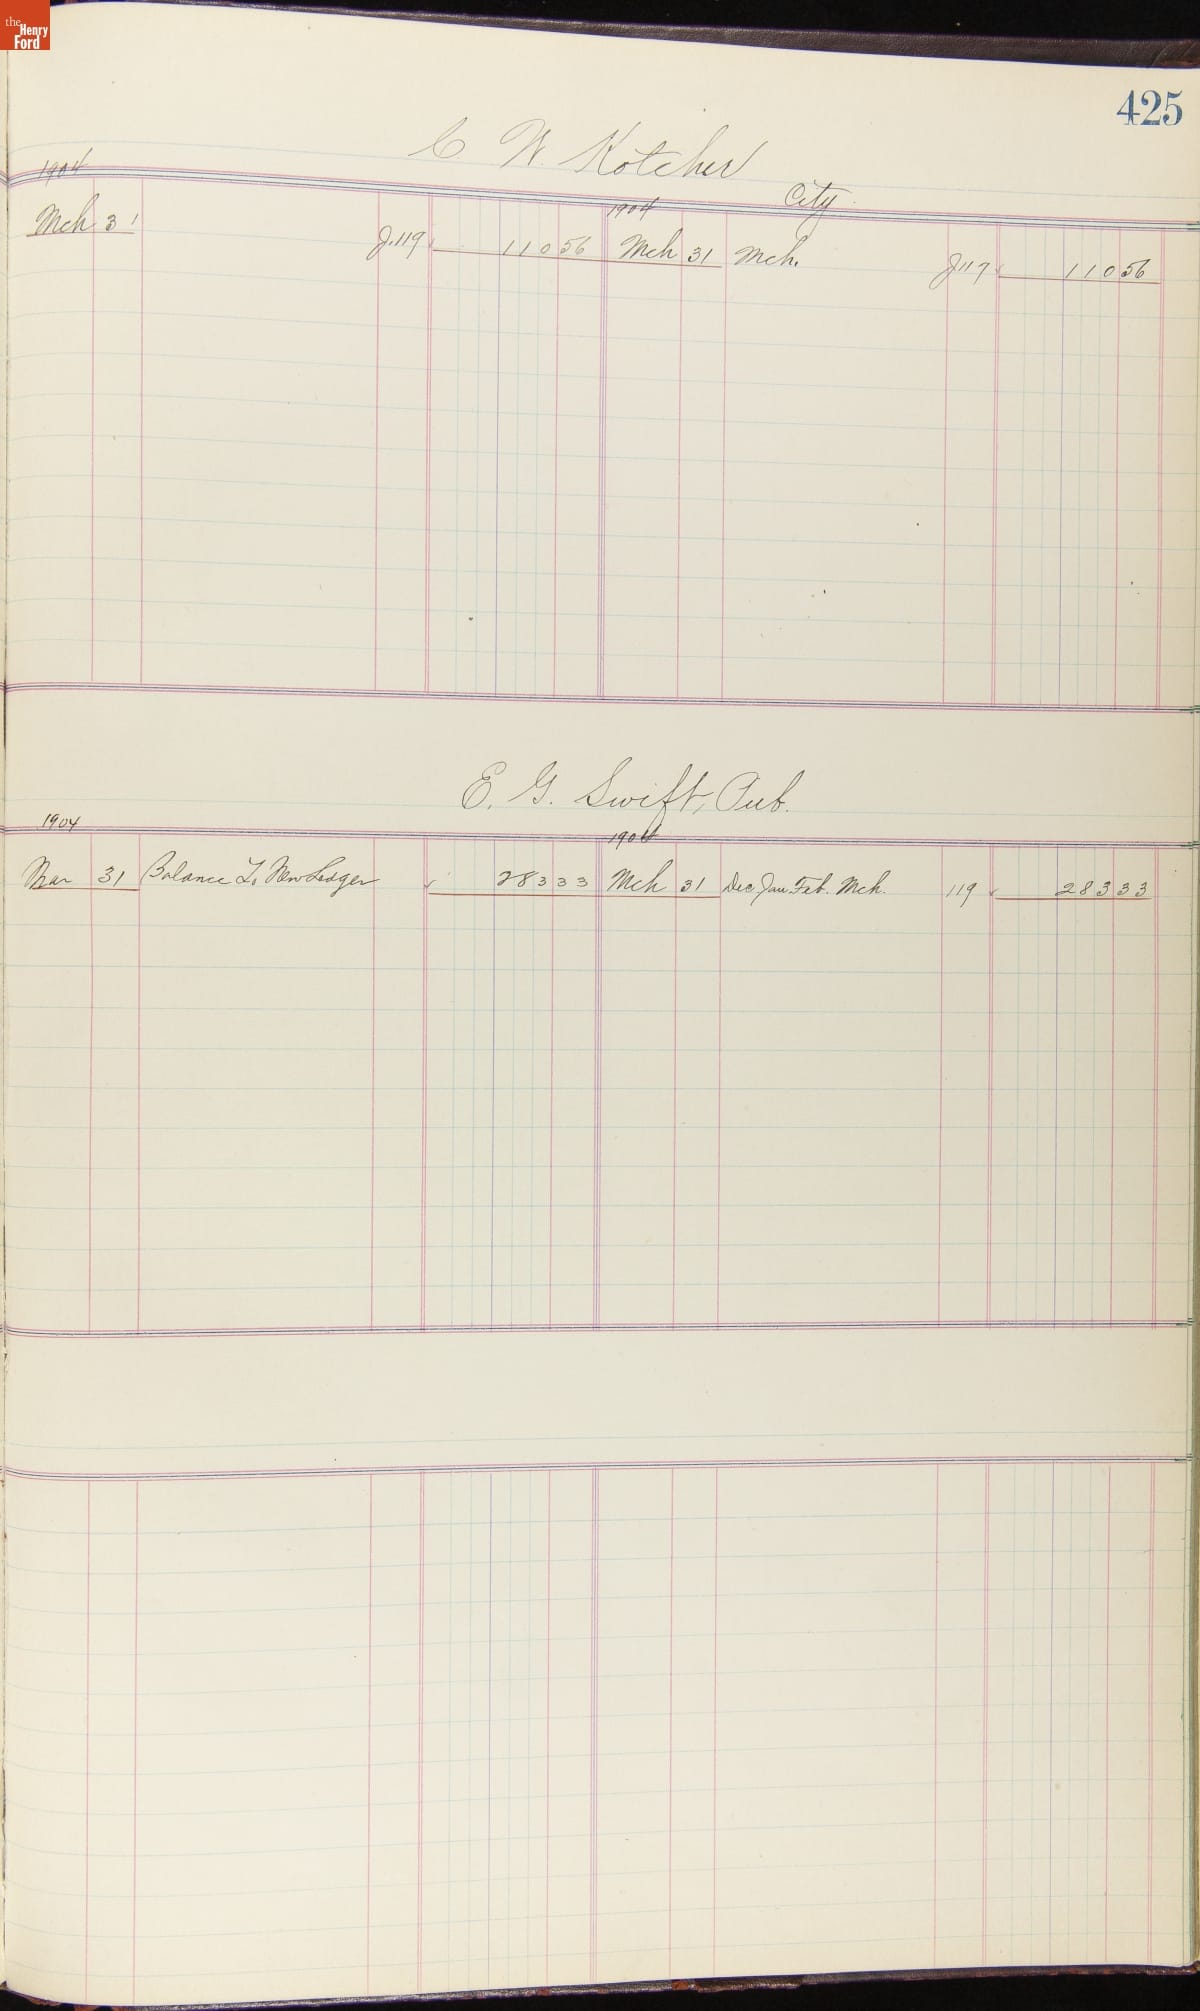 the
Henry
Ford
425
C W. Kotcher
City
1904
1904
Mch 31 J.119 110 56 Mch 31 Mch. J117 110 56
E. G. Swift, Pub.
1904
1904
Mar 31 Balance To New Ledger 283 33 Mch 31 Dec. Jan. Feb. Mch. 119 283 33